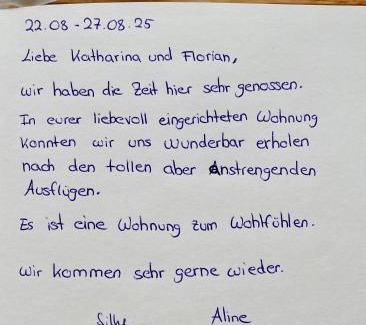 22.08 - 27.08.25
Liebe Katharina und Florian,
wir haben die Zeit hier sehr genossen.
In eurer liebevoll eingerichteten Wohnung
konnten wir uns wunderbar erholen
nach den tollen aber anstrengenden
Ausflügen.
Es ist eine Wohnung zum Wohlfühlen.
Wir kommen sehr gerne wieder.
Aline